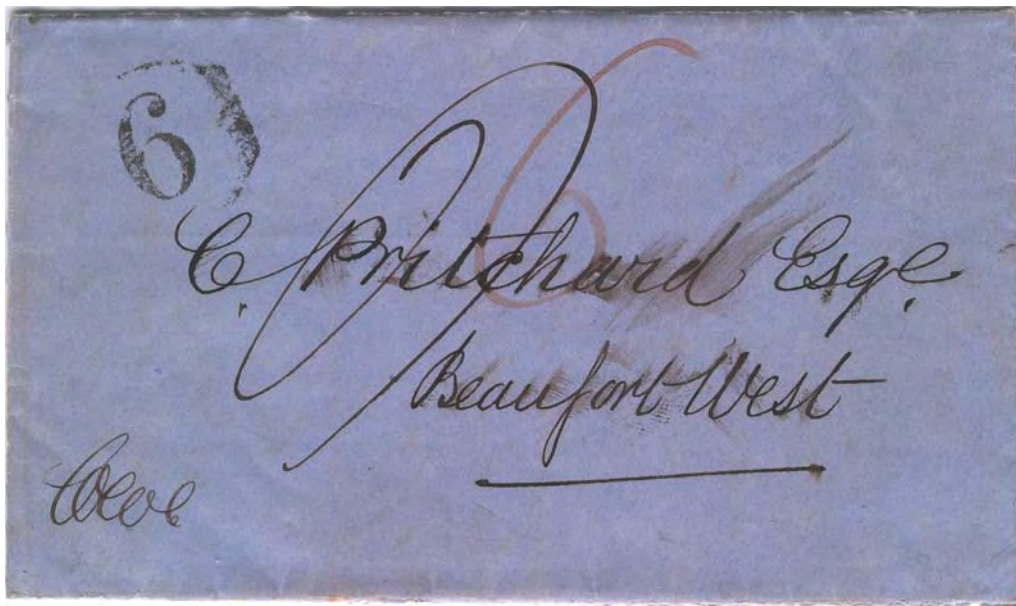 6
6
C. Pritchard Esqe.
Beaufort West